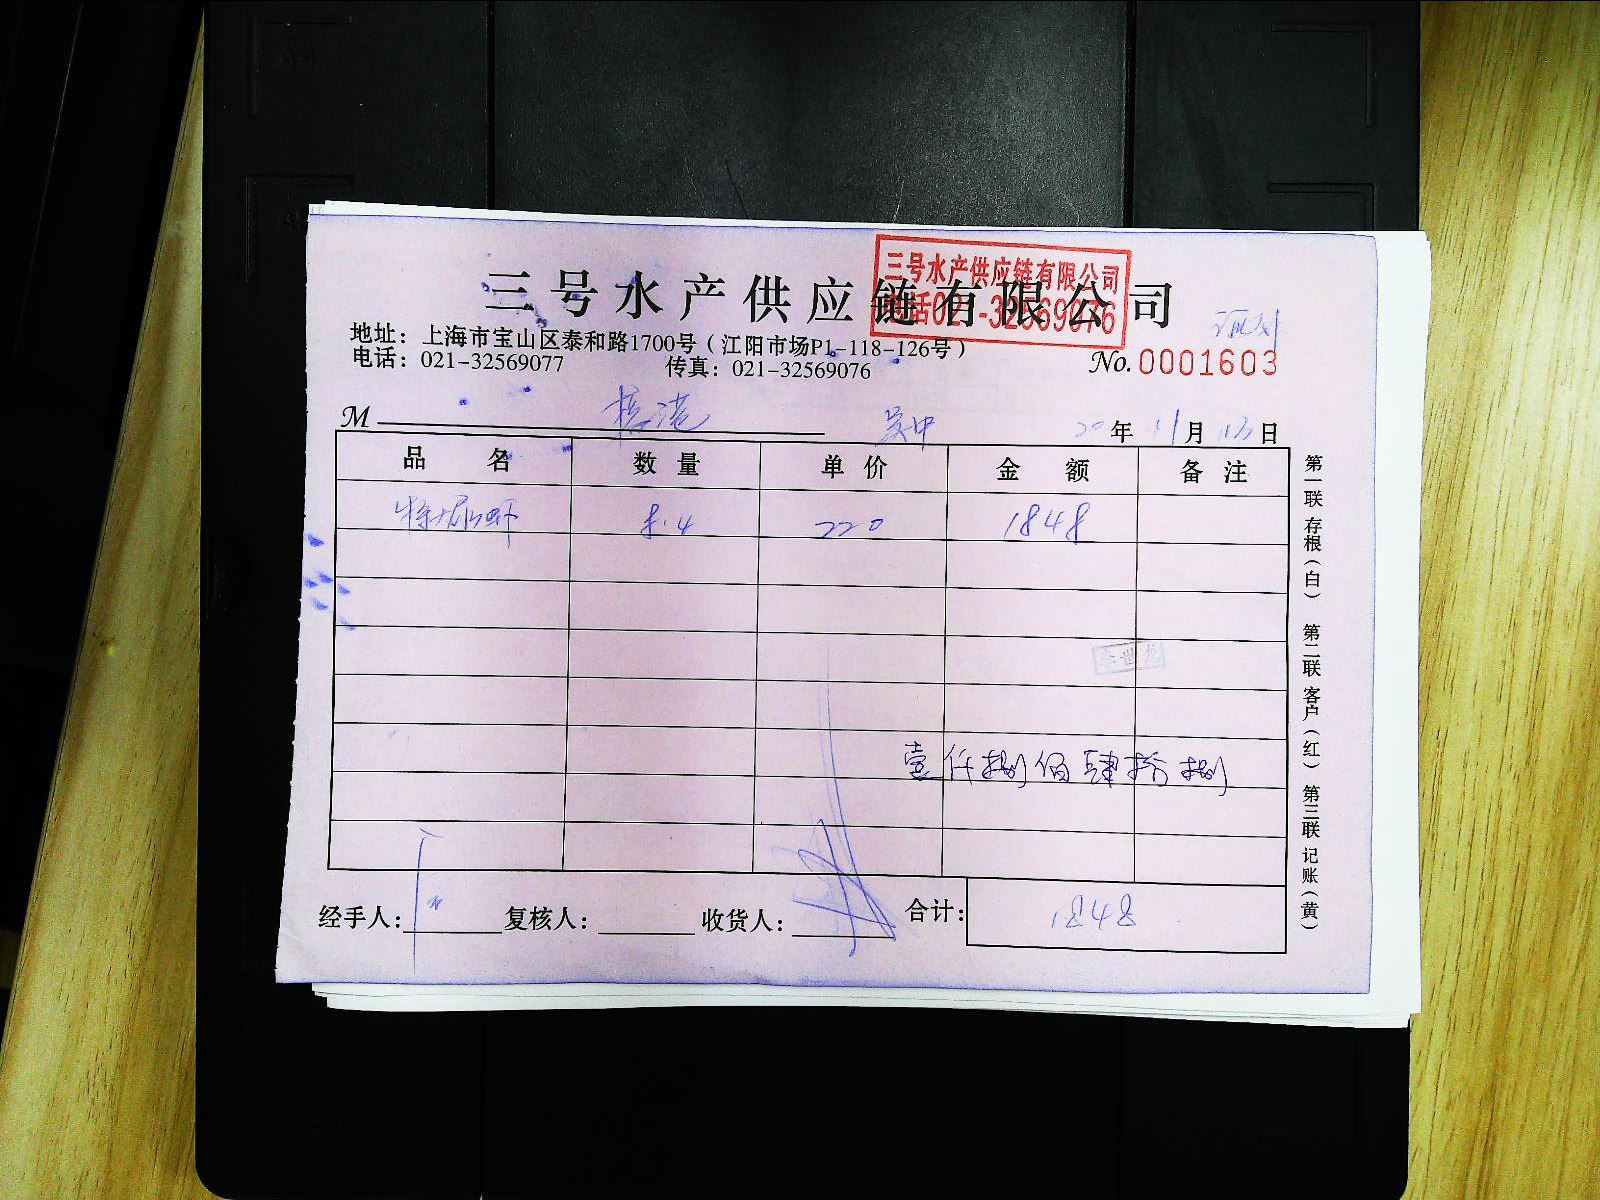 三号水产供应链有限公司
三号水产供应链有限公司
电话021-32569076
地址：上海市宝山区泰和路1700号（江阳市场P1-118-126号）
电话：021-32569077 传真：021-32569076
No.0001603
M 吴中 20年11月13日
品名 数量 单价 金额 备注
8.4 220 1848
李世龙
壹仟捌佰肆拾捌
经手人： 复核人： 收货人： 合计： 1848
第一联 存根（白） 第二联 客户（红） 第三联 记账（黄）